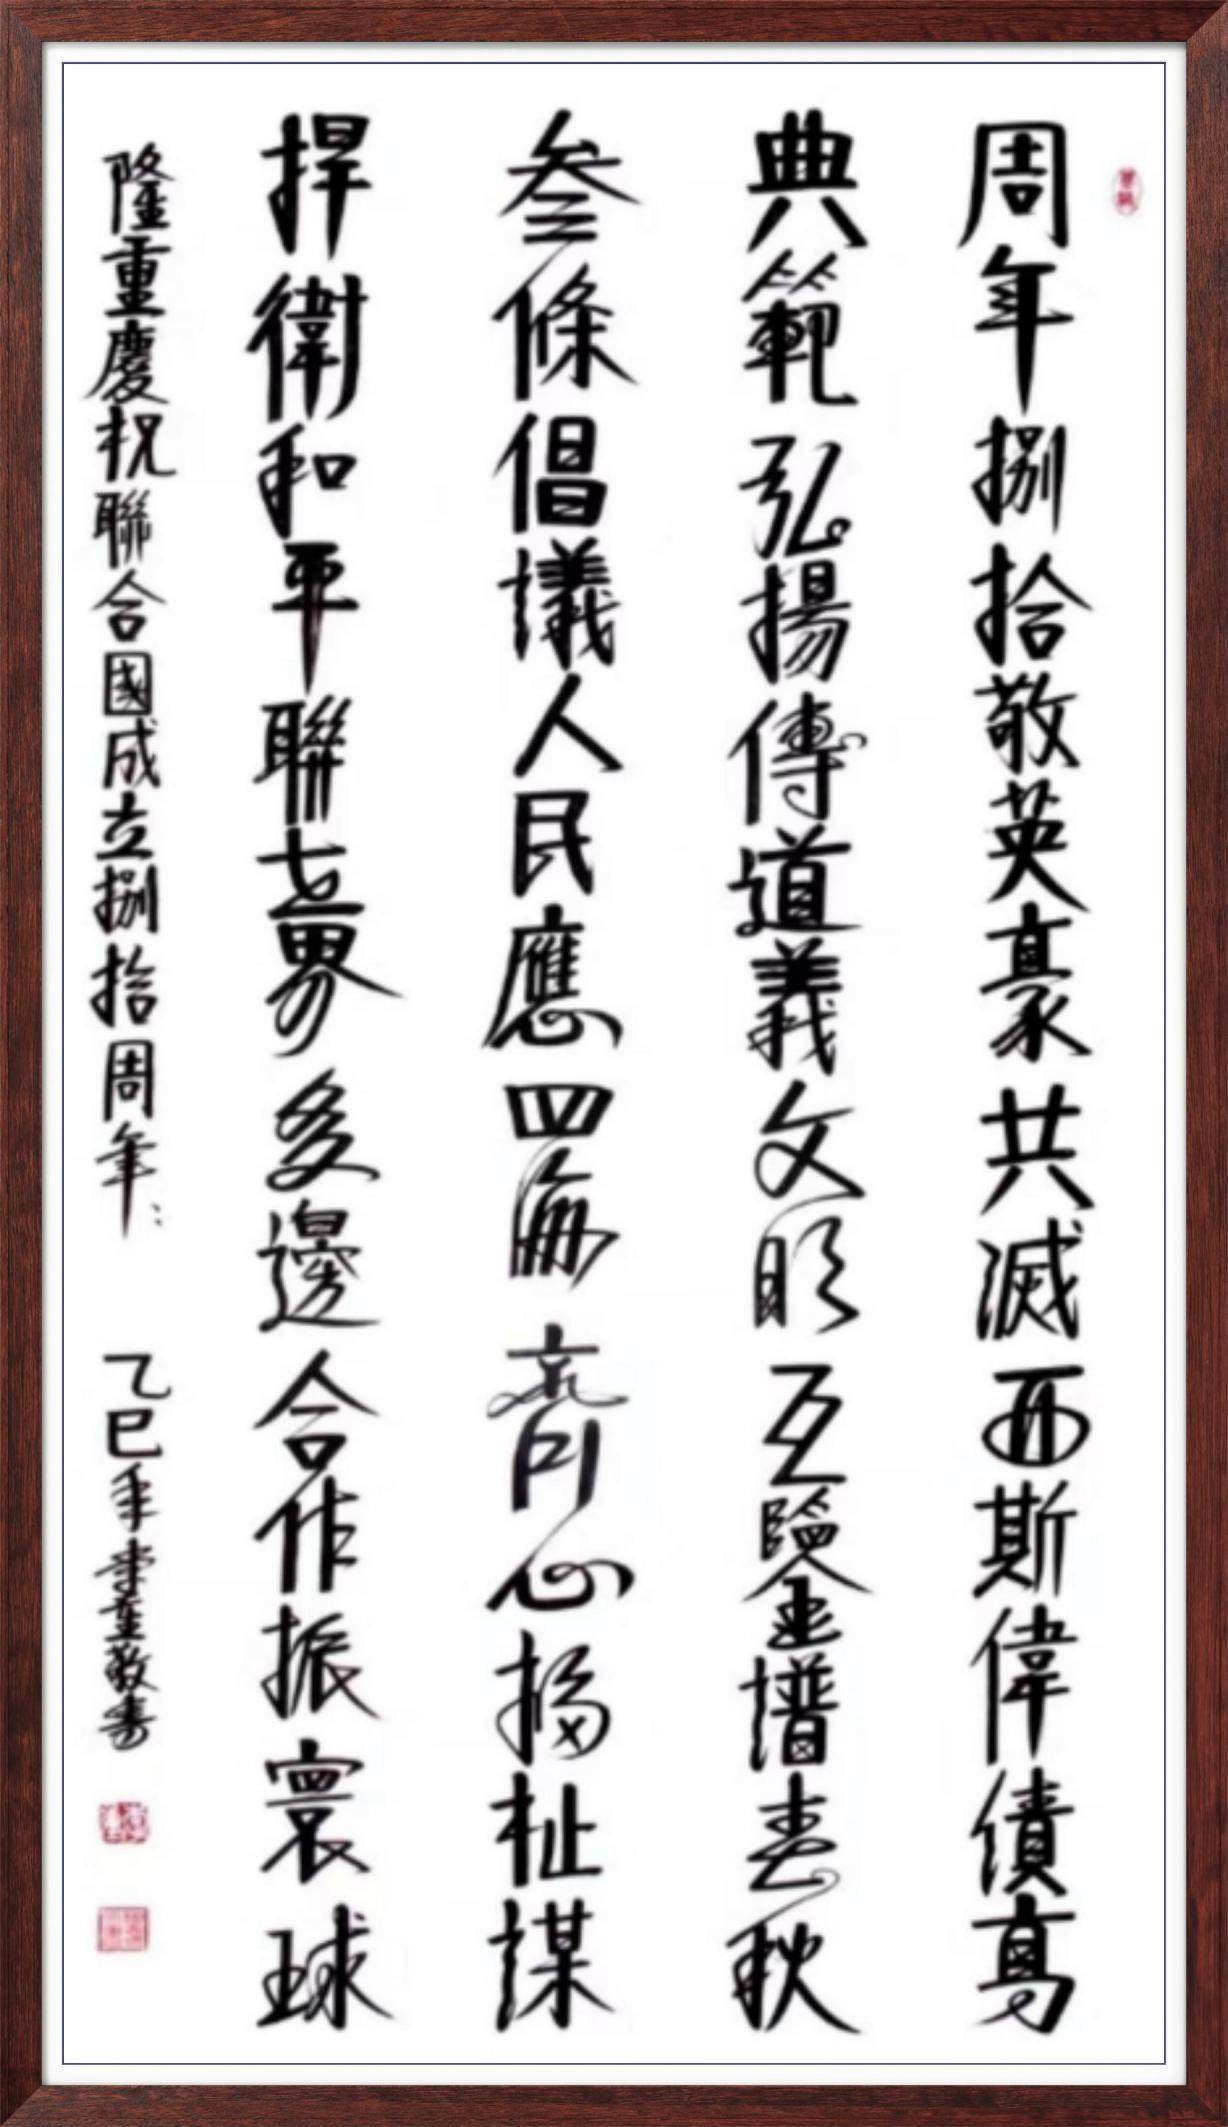 周年捌拾敬英豪共滅西斯偉績高
典範弘揚傳道義文明互鑒譜春秋
叁條倡議人民應四海齊心福祉謀
捍衛和平聯世界多邊合作振寰球
隆重慶祝聯合國成立捌拾周年：乙巳年敬書